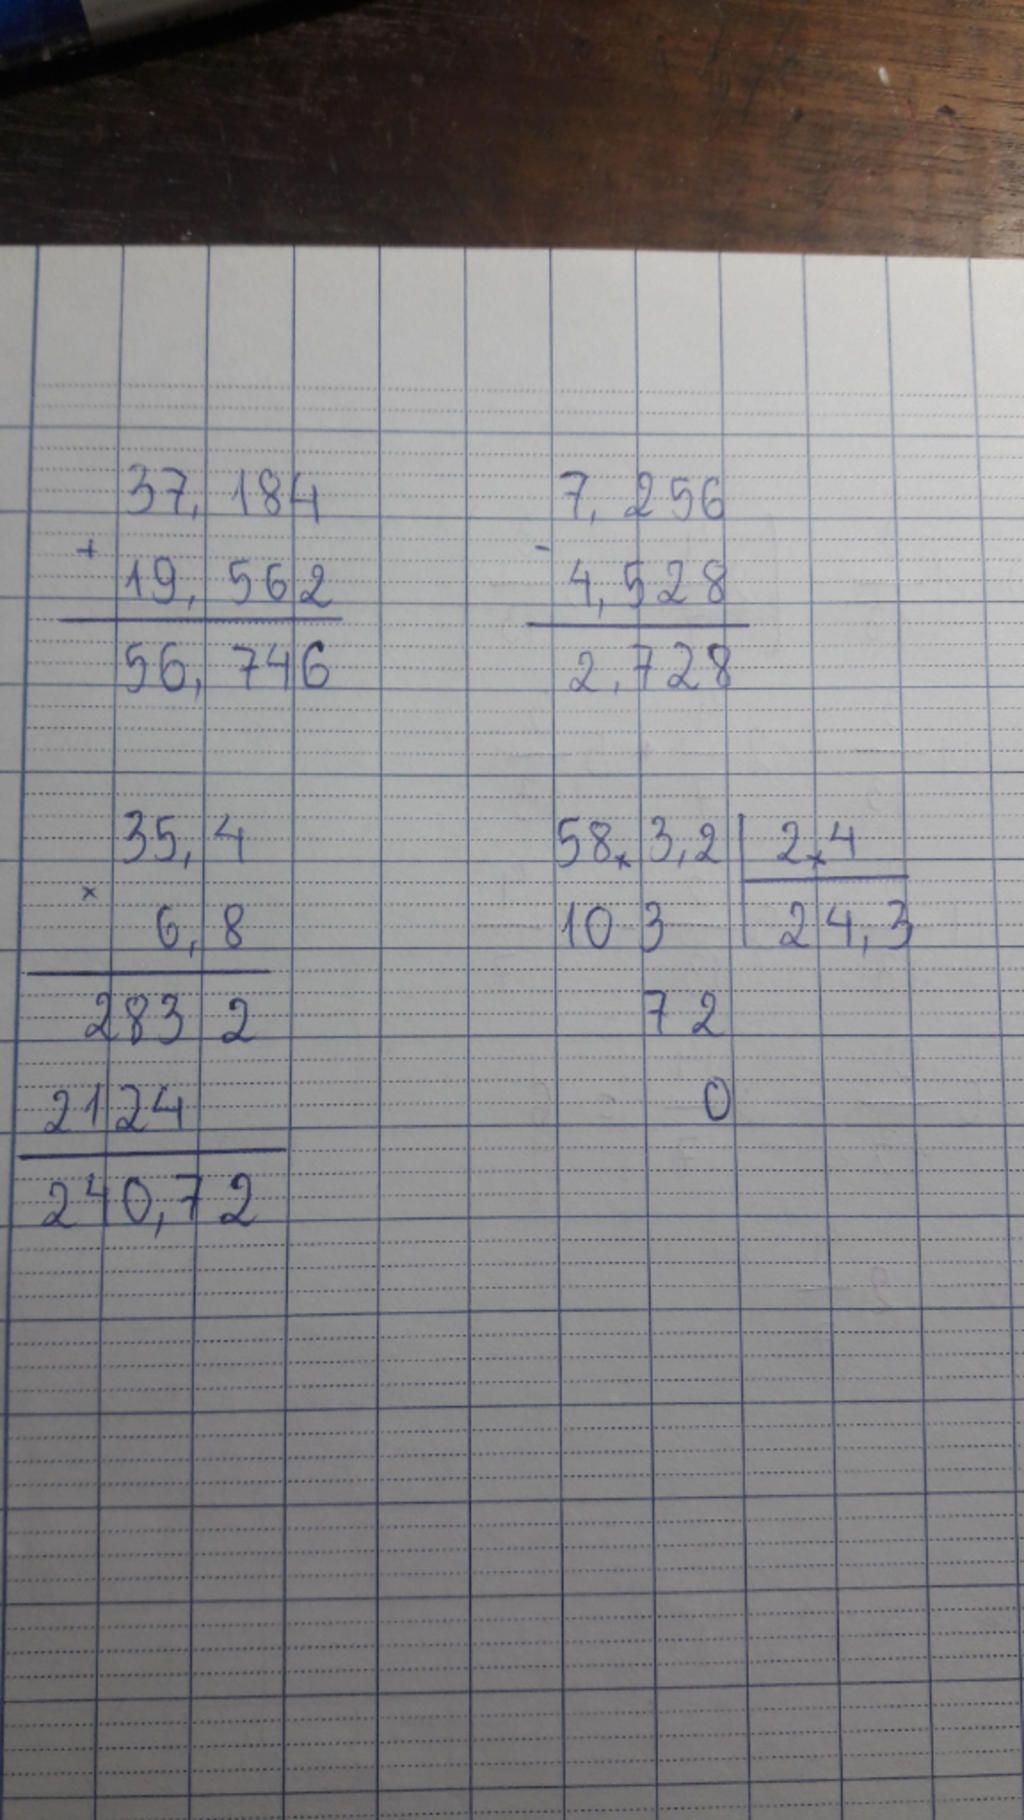 37,184
+
19,562
56,746
7,256
-
4,528
2,728
35,4
×
6,8
283 2
2124
240,72
58,3,2 2,4
10 3 24,3
72
0